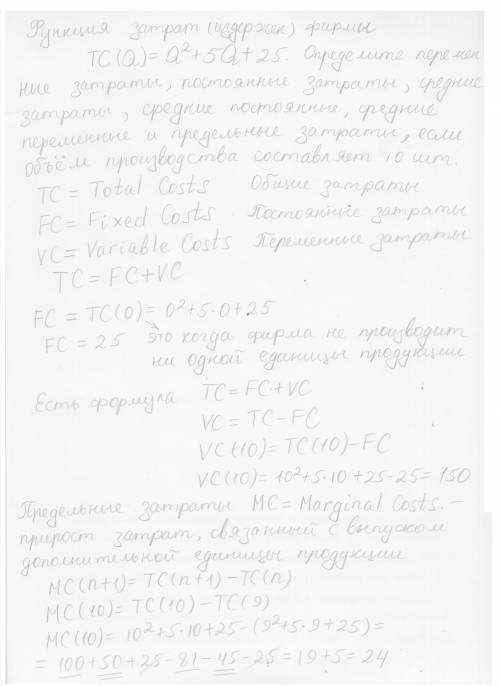 Функция затрат (издержек) фирмы
TC(Q)=Q²+5Q+25. Определите перемен-
ные затраты, постоянные затраты, средние
затраты, средние постоянные, средние
переменные и предельные затраты, если
объём производства составляет 10 шт.
TC = Total Costs Общие затраты
FC = Fixed Costs Постоянные затраты
VC = Variable Costs Переменные затраты
TC = FC+VC
FC = TC(0) = 0²+5·0+25
FC = 25 это когда фирма не производит
ни одной единицы продукции
Есть формула TC=FC+VC
VC = TC-FC
VC(10)=TC(10)-FC
VC(10)=10²+5·10+25-25=150
Предельные затраты MC=Marginal Costs. –
прирост затрат, связанный с выпуском
дополнительной единицы продукции
MC(n+1)=TC(n+1)-TC(n)
MC(10)=TC(10)-TC(9)
MC(10)=10²+5·10+25-(9²+5·9+25)=
=100+50+25-81-45-25=19+5=24